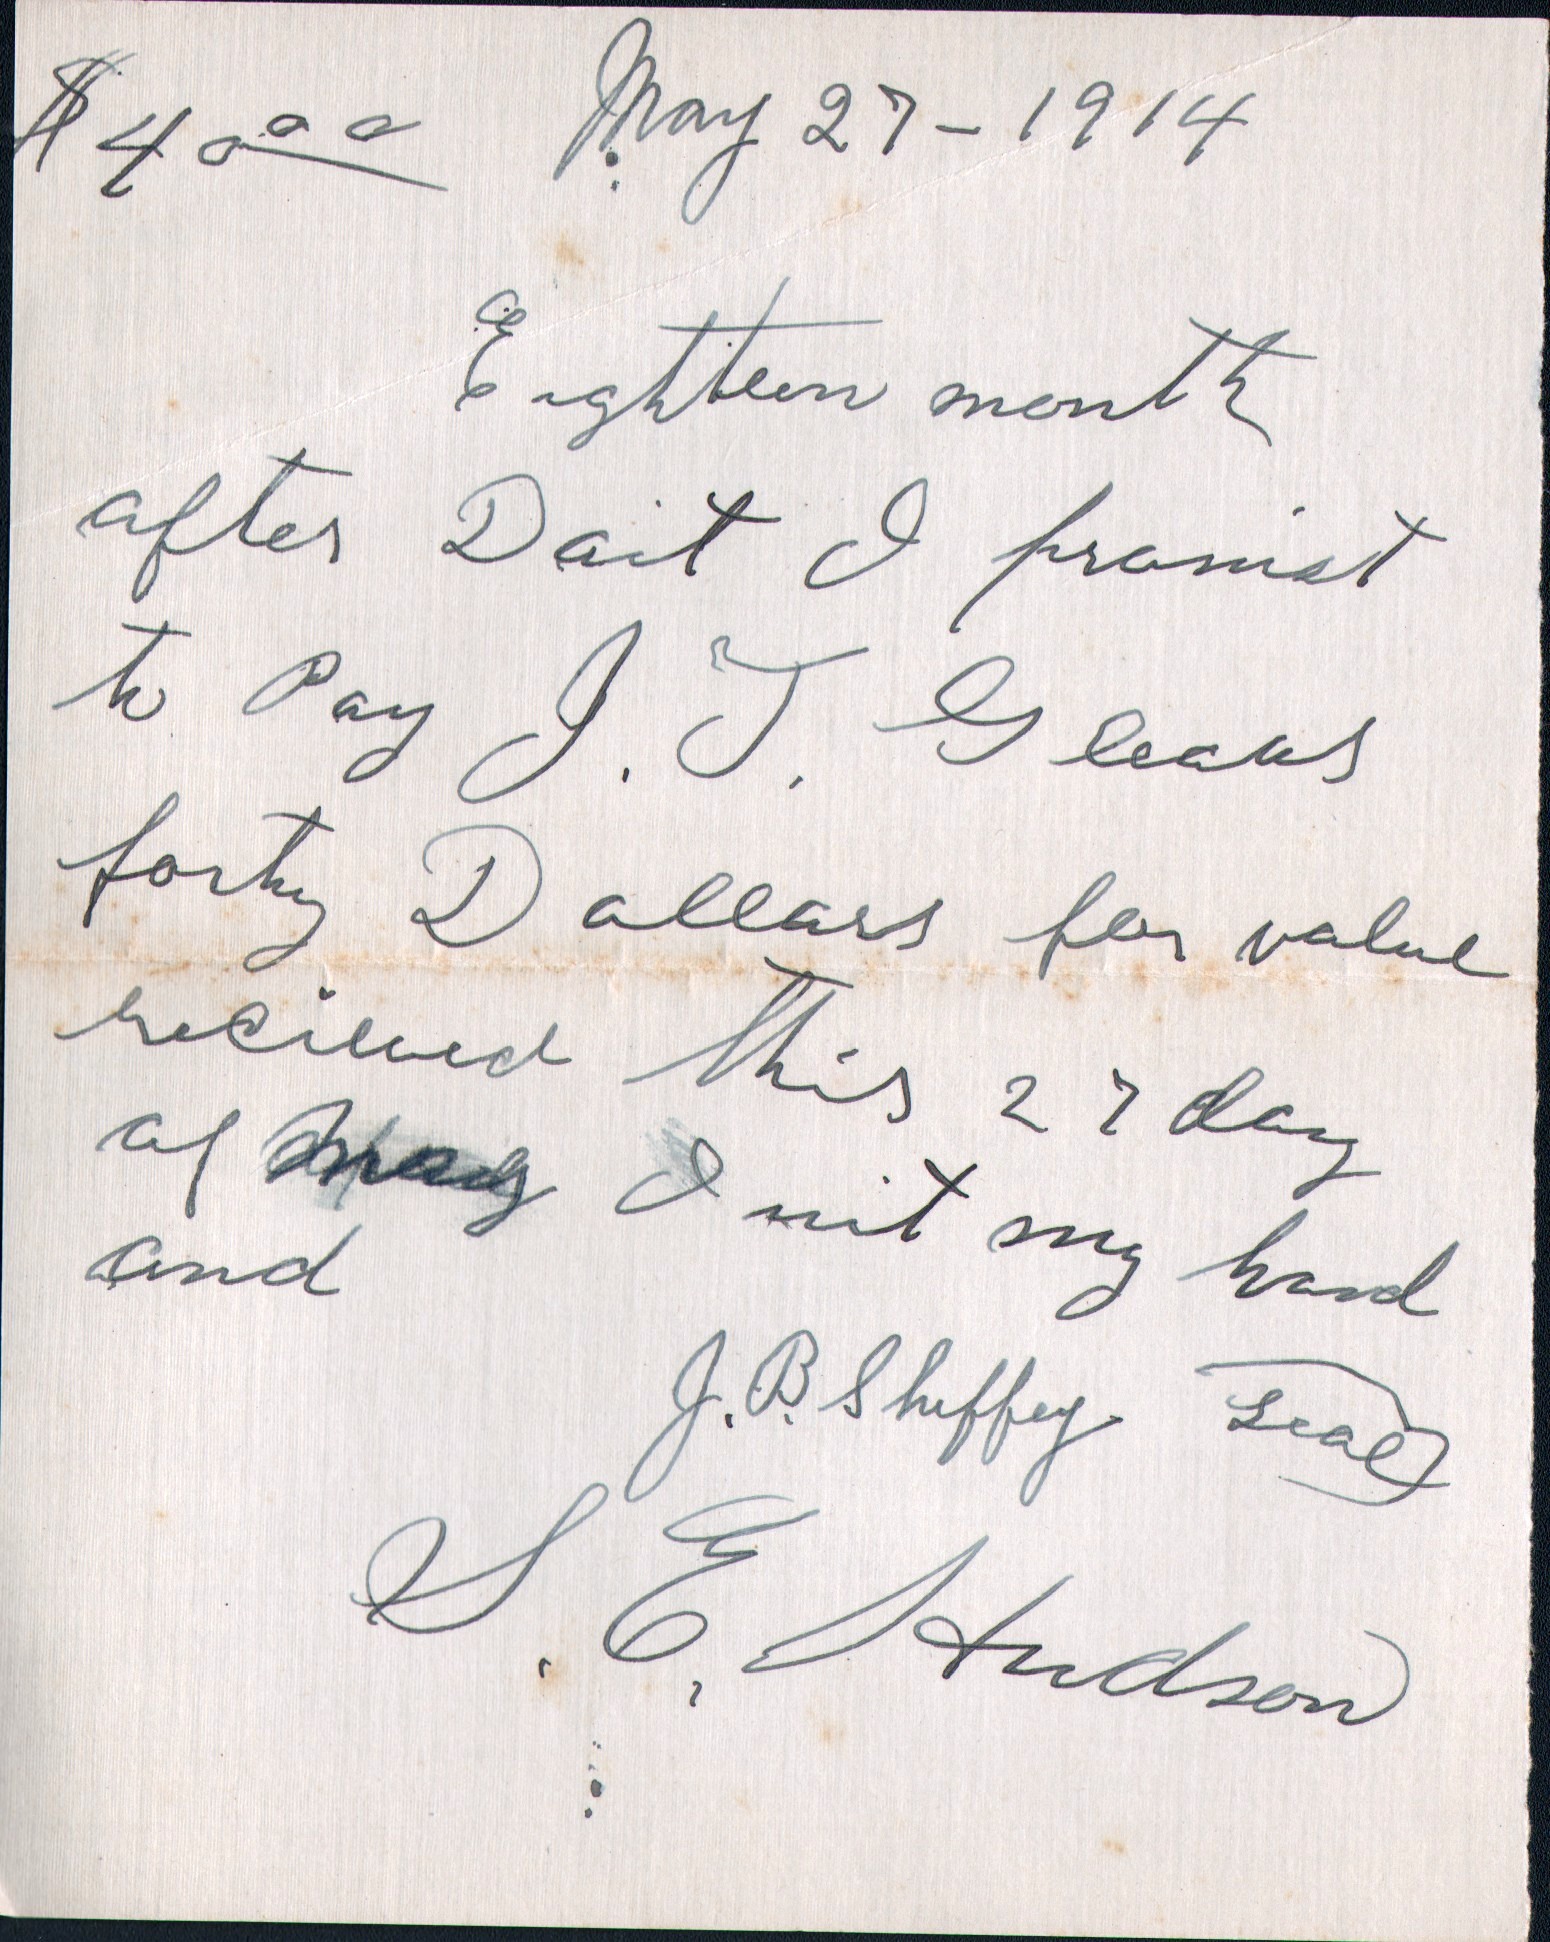 $40 00 May 27-1914
Eighteen month
after Dait I promist
to Pay J. T. Gleaus
forty Dollars for value
recieved this 27 day
of May I wit my hand
and
J. B. Sheffey Seal
S. E. Hudson